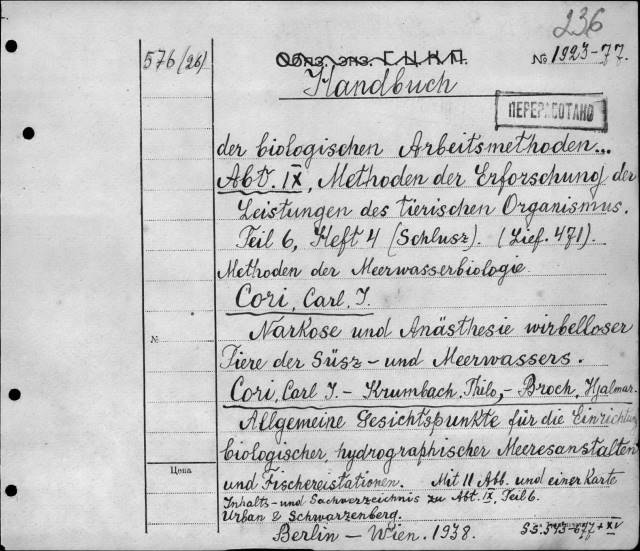 236
576 (26)
Обяз. экз. Г.Ц.К.П.
№ 1923-77.
Handbuch
ПЕРЕРАБОТАНО
der biologischen Arbeitsmethoden...
Abt. IX, Methoden der Erforschung der
Leistungen des tierischen Organismus.
Teil 6, Heft 4 (Schlusz). (Lief. 471).
Methoden der Meerwasserbiologie.
Cori, Carl. J.
Narkose und Anästhesie wirbelloser
№
Tiere der Süsz- und Meerwassers.
Cori, Carl J. - Krumbach, Thilo, - Broch, Hjalmar.
Allgemeine Gesichtspunkte für die Einrichtung
biologischer, hydrographischer Meeresanstalten
Цена
und Fischereistationen. Mit 11 Abb. und einer Karte
Inhalts- und Sachverzeichnis zu Abt. IX, Teil 6.
Urban & Schwarzenberg.
Berlin - Wien. 1938.